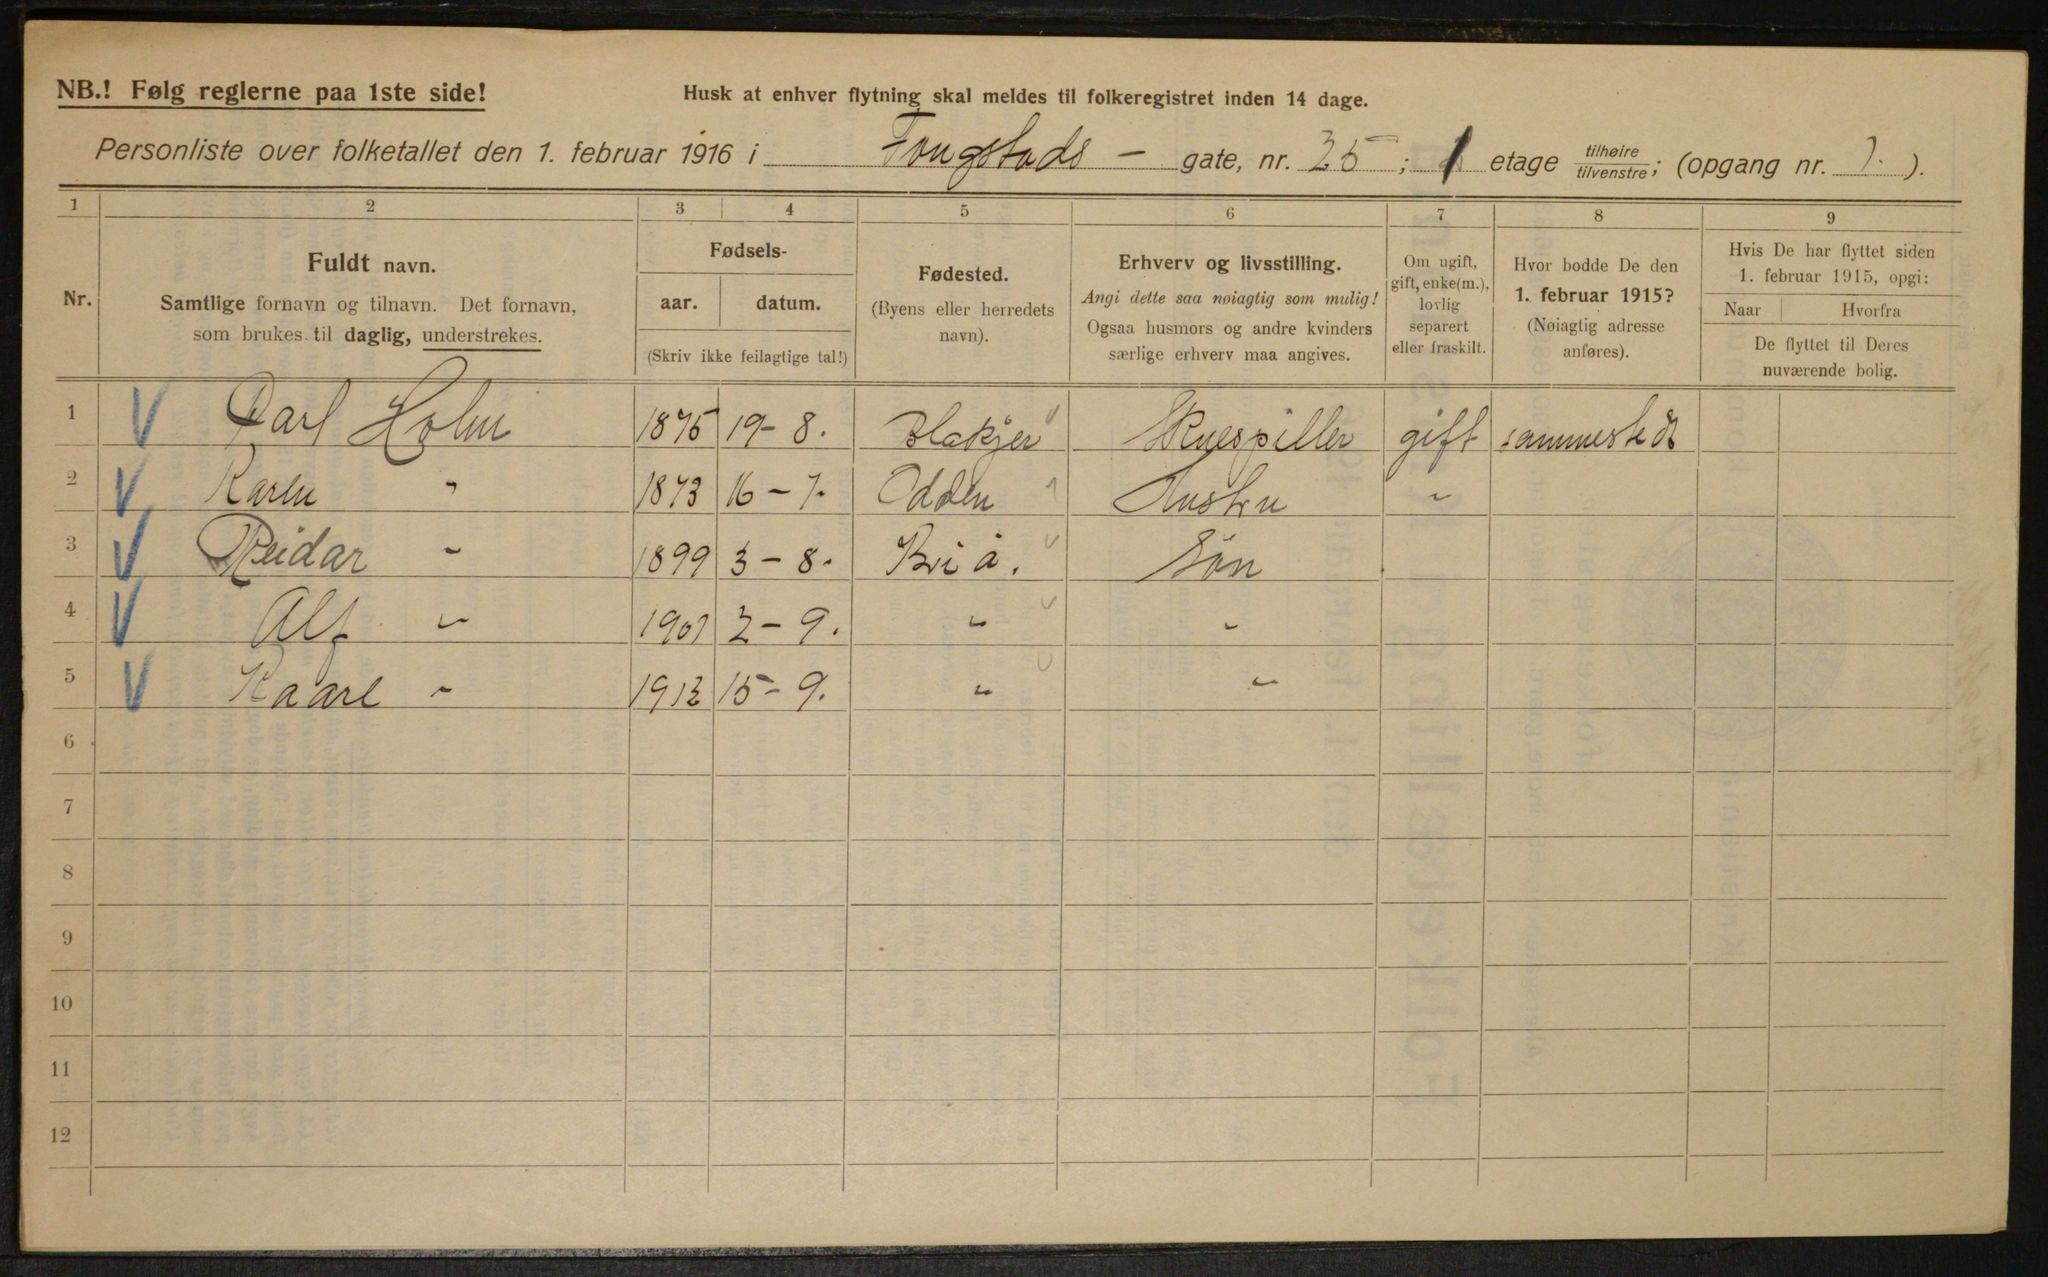 NB.! Følg reglerne paa 1ste side!
Husk at enhver flytning skal meldes til folkeregistret inden 14 dage.
Personliste over folketallet den 1. februar 1916 i Fougstads – gate, nr. 25; 1 etage tilhøire/tilvenstre; (opgang nr. 1.).
1 2 3 4 5 6 7 8 9
Nr.
Fuldt navn.
Samtlige fornavn og tilnavn. Det fornavn,
som brukes til daglig, understrekes.
Fødsels-
aar. datum.
(Skriv ikke feilagtige tal!)
Fødested.
(Byens eller herredets
navn).
Erhverv og livsstilling.
Angi dette saa nøiagtig som mulig!
Ogsaa husmors og andre kvinders
særlige erhverv maa angives.
Om ugift,
gift, enke(m.),
lovlig
separert
eller fraskilt.
Hvor bodde De den
1. februar 1915?
(Nøiagtig adresse
anføres).
Hvis De har flyttet siden
1. februar 1915, opgi:
Naar Hvorfra
De flyttet til Deres
nuværende bolig.
1 Carl Holm 1875 19-8. Blakjer Skuespiller gift sammesteds
2 Karen " 1873 16-7. Odden Hustru "
3 Reidar " 1899 3-8. Kriá. Søn
4 Alf " 1901 2-9. " "
5 Kaare " 1913 15-9. " "
6
7
8
9
10
11
12